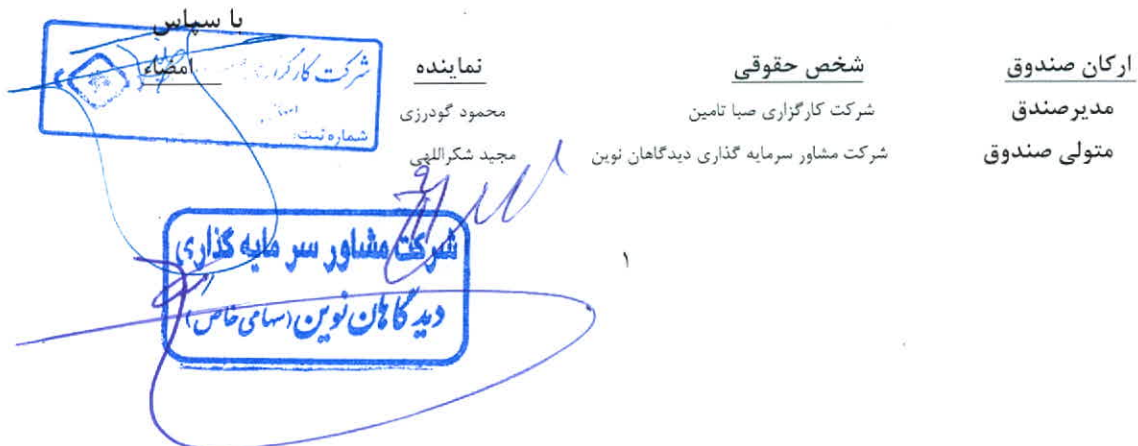 با سپاس
ارکان صندوق شخص حقوقی نماینده امضاء
مدیرصندق شرکت کارگزاری صبا تامین محمود گودرزی
متولی صندوق شرکت مشاور سرمایه گذاری دیدگاهان نوین مجید شکراللهی
شرکت کارگزاری
شماره ثبت:
شرکت مشاور سرمایه گذاری
دیدگاهان نوین (سهامی خاص)
۱